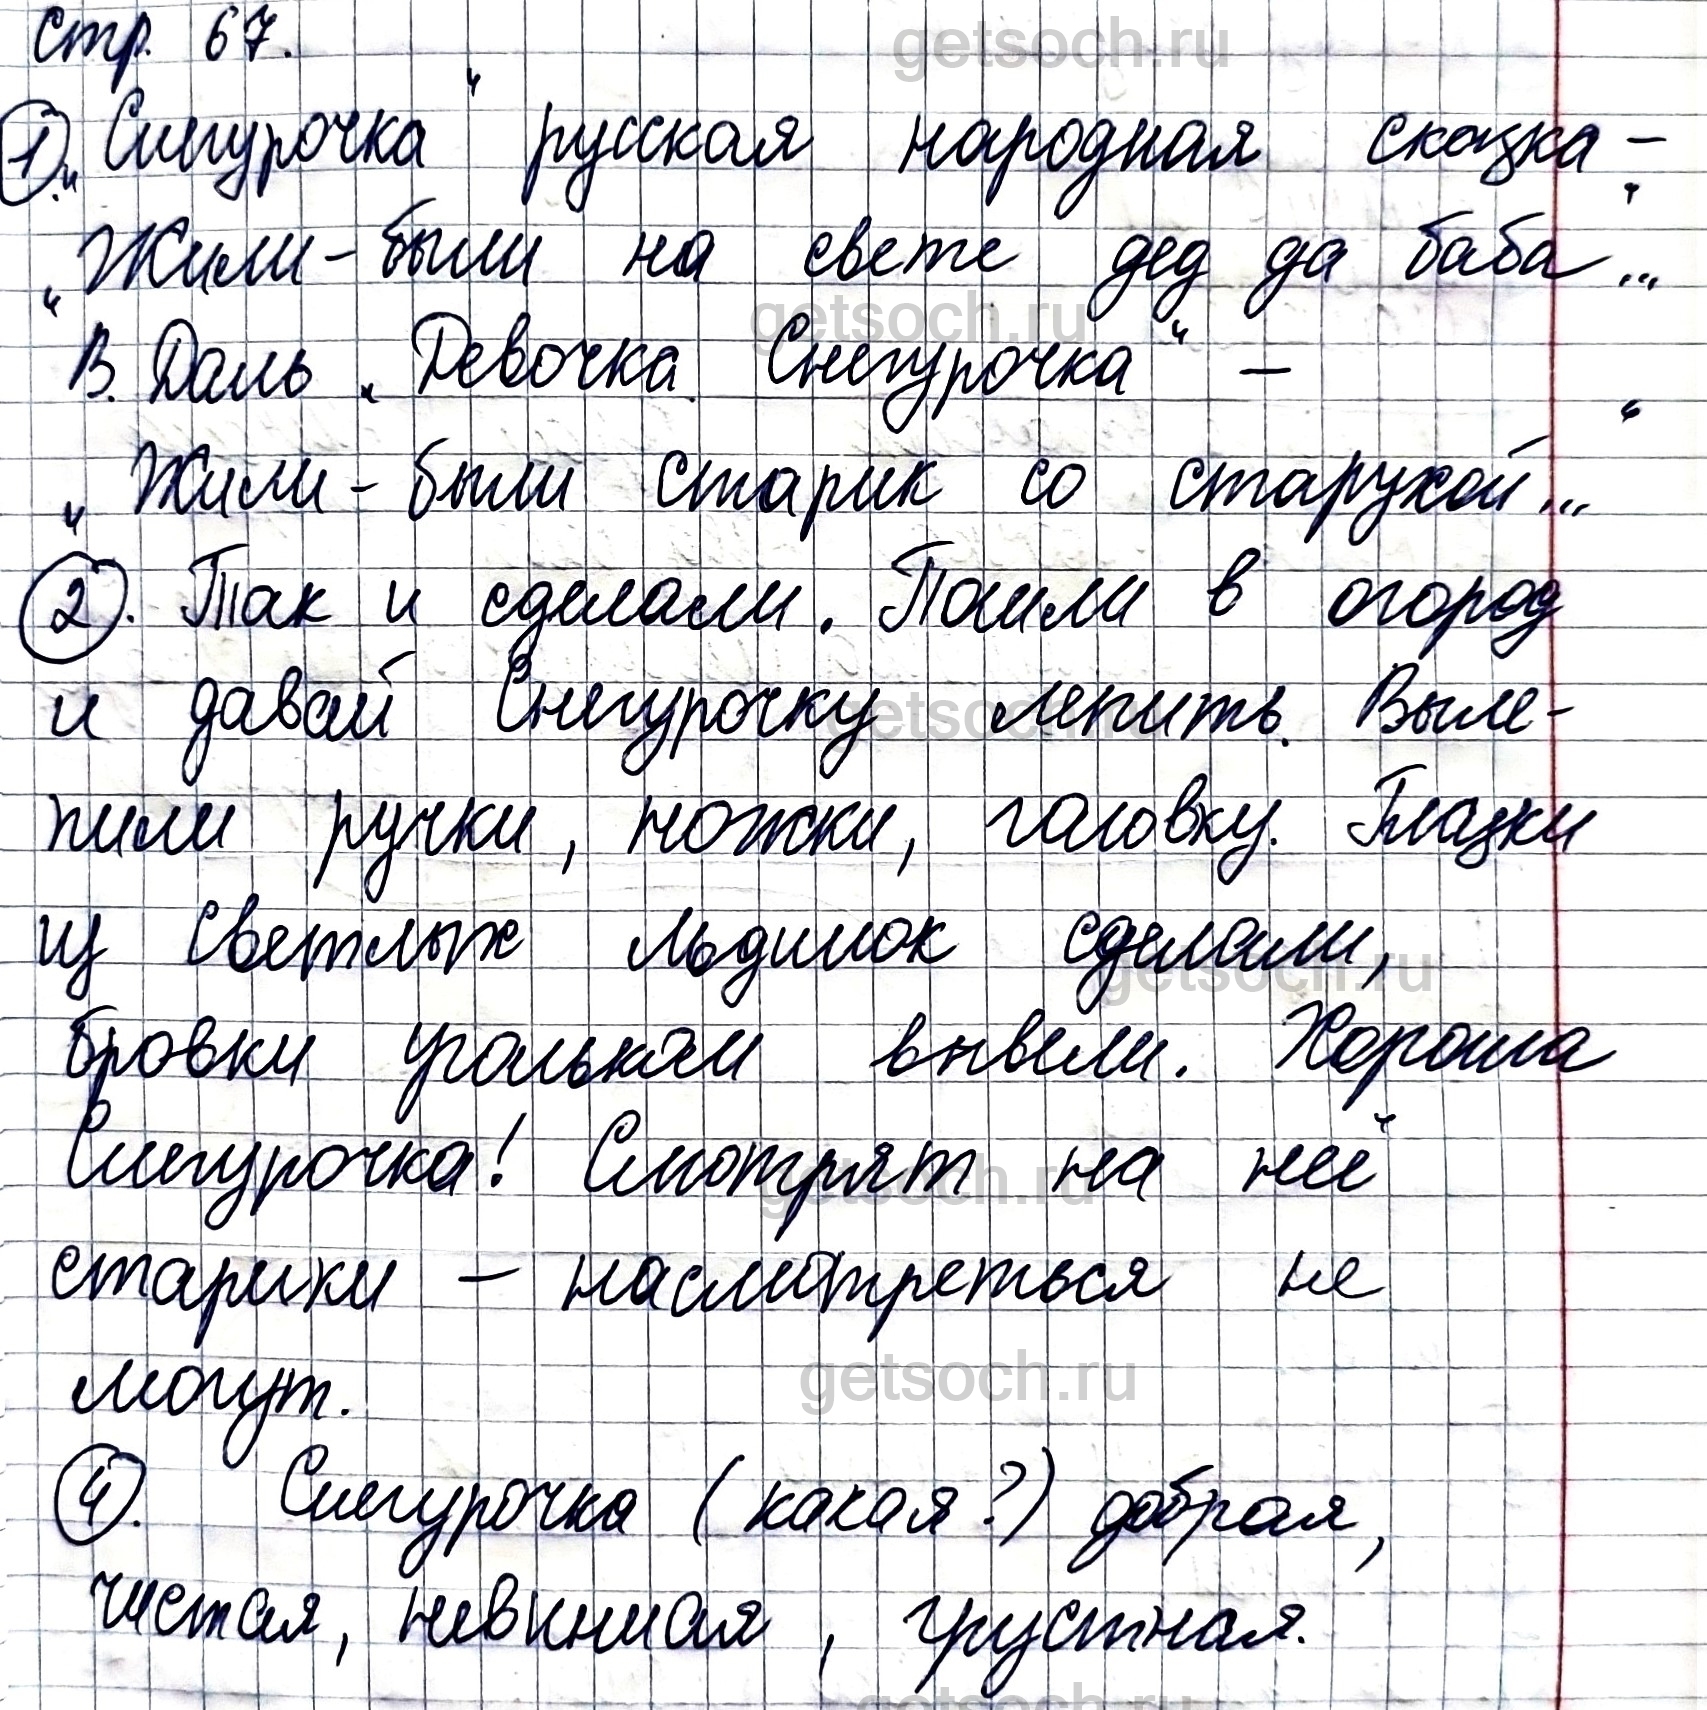 стр. 67.
getsoch.ru
1. „Снегурочка“ русская народная сказка –
„Жили-были на свете дед да баба...“
getsoch.ru
В. Даль „Девочка Снегурочка“ –
„Жили-были старик со старухой...“
2. Так и сделали. Пошли в огород
и давай Снегурочку лепить. Выле-
getsoch.ru
пили ручки, ножки, головку. Глазки
из светлых льдинок сделали,
getsoch.ru
бровки угольком вывели. Хороша
Снегурочка! Смотрят на неё
getsoch.ru
старики – насмотреться не
могут.
getsoch.ru
4. Снегурочка (какая?) добрая,
чистая, невинная, грустная.
getsoch.ru